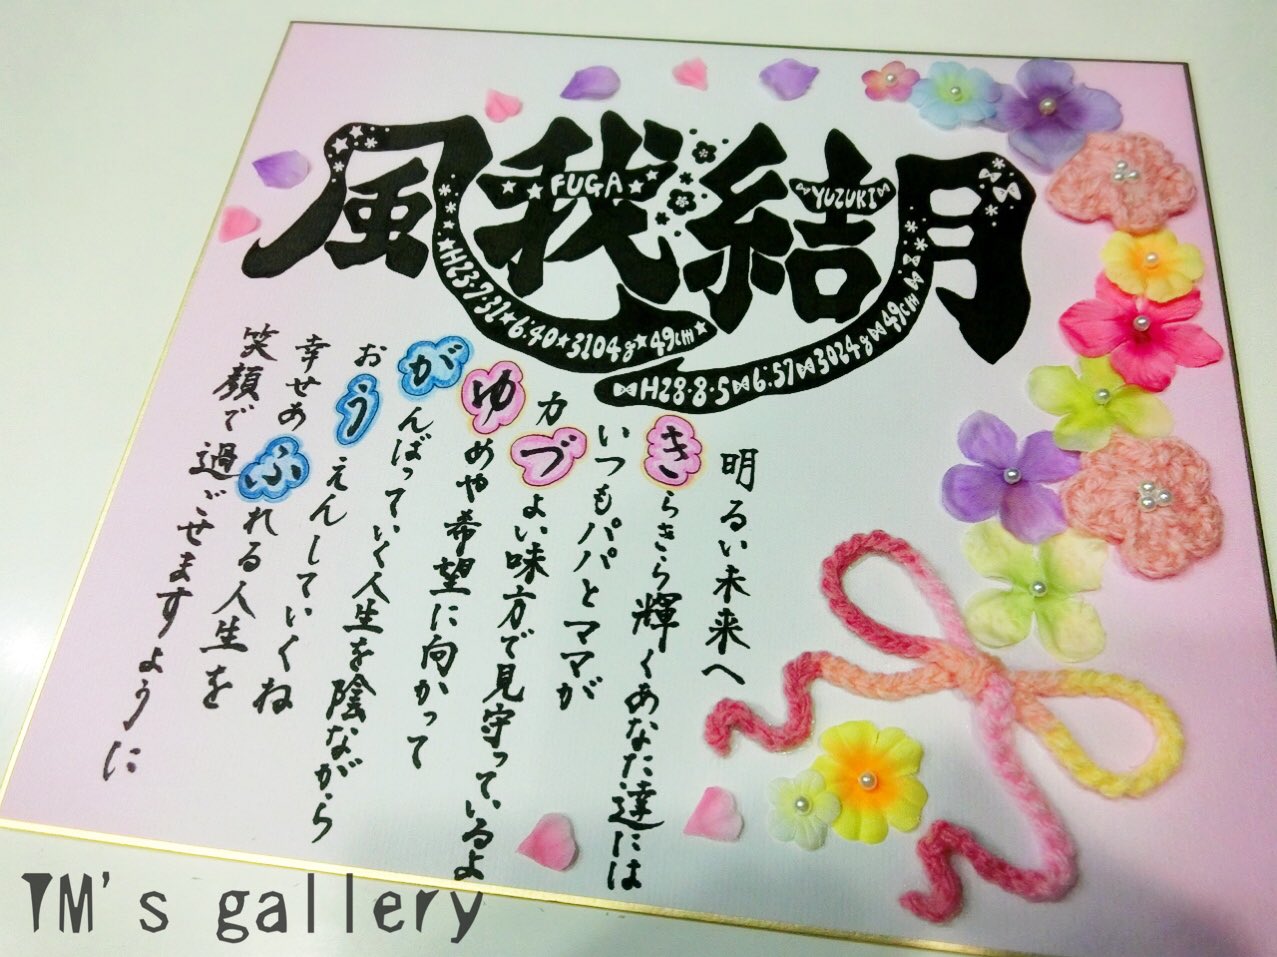 風我結月
FUGA
YUZUKI
H23・7・31★6:40★3104g★49cm★
H28・8・5 6:57 3024g 49cm
明るい未来へ
きらきら輝くあなた達には
いつもパパとママが
力づよい味方で見守っているよ
ゆめや希望に向かって
がんばっていく人生を陰ながら
おうえんしていくね
幸せあふれる人生を
笑顔で過ごせますように
TM's gallery